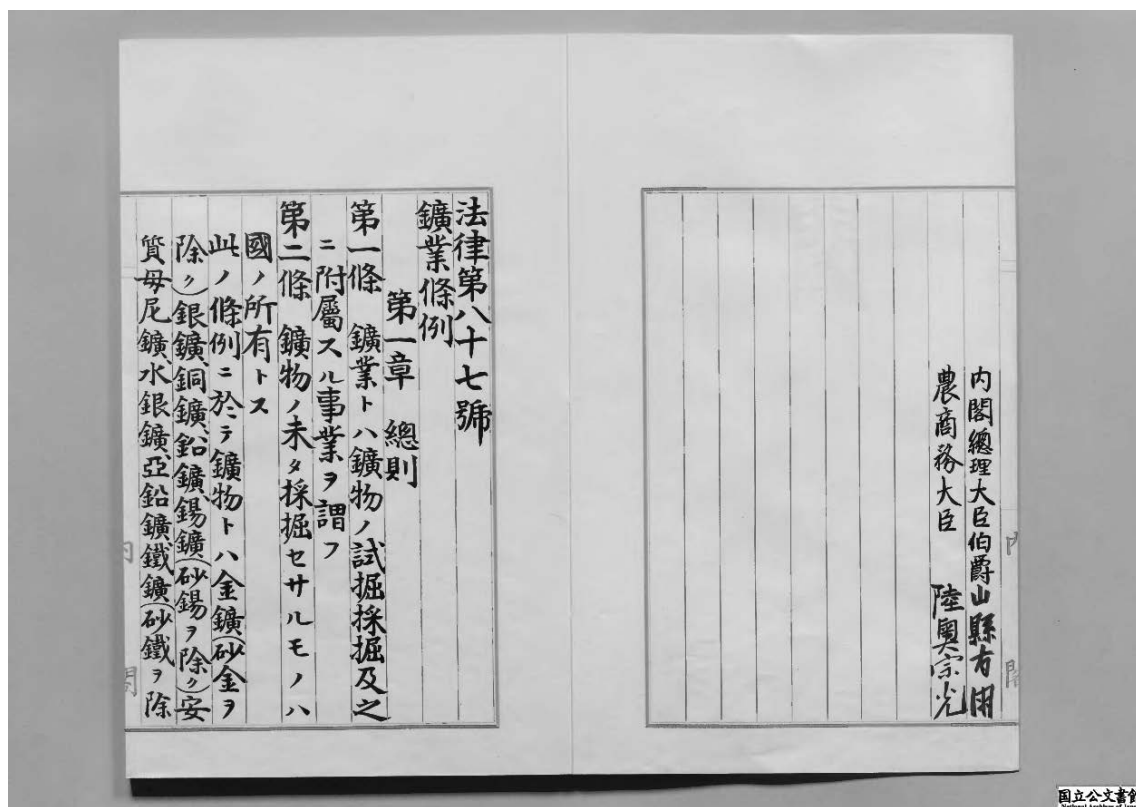 内閣總理大臣伯爵山縣有朋
農商務大臣 陸奧宗光
法律第八十七號
鑛業條例
第一章 總則
第一條 鑛業トハ鑛物ノ試掘採掘及之
ニ附屬スル事業ヲ謂フ
第二條 鑛物ノ未タ採掘セサルモノハ
國ノ所有トス
此ノ條例ニ於テ鑛物トハ金鑛(砂金ヲ
除ク)銀鑛、銅鑛、鉛鑛、錫鑛(砂錫ヲ除ク)安
質母尼鑛、水銀鑛、亞鉛鑛、鐵鑛(砂鐵ヲ除
内閣
内閣
国立公文書館